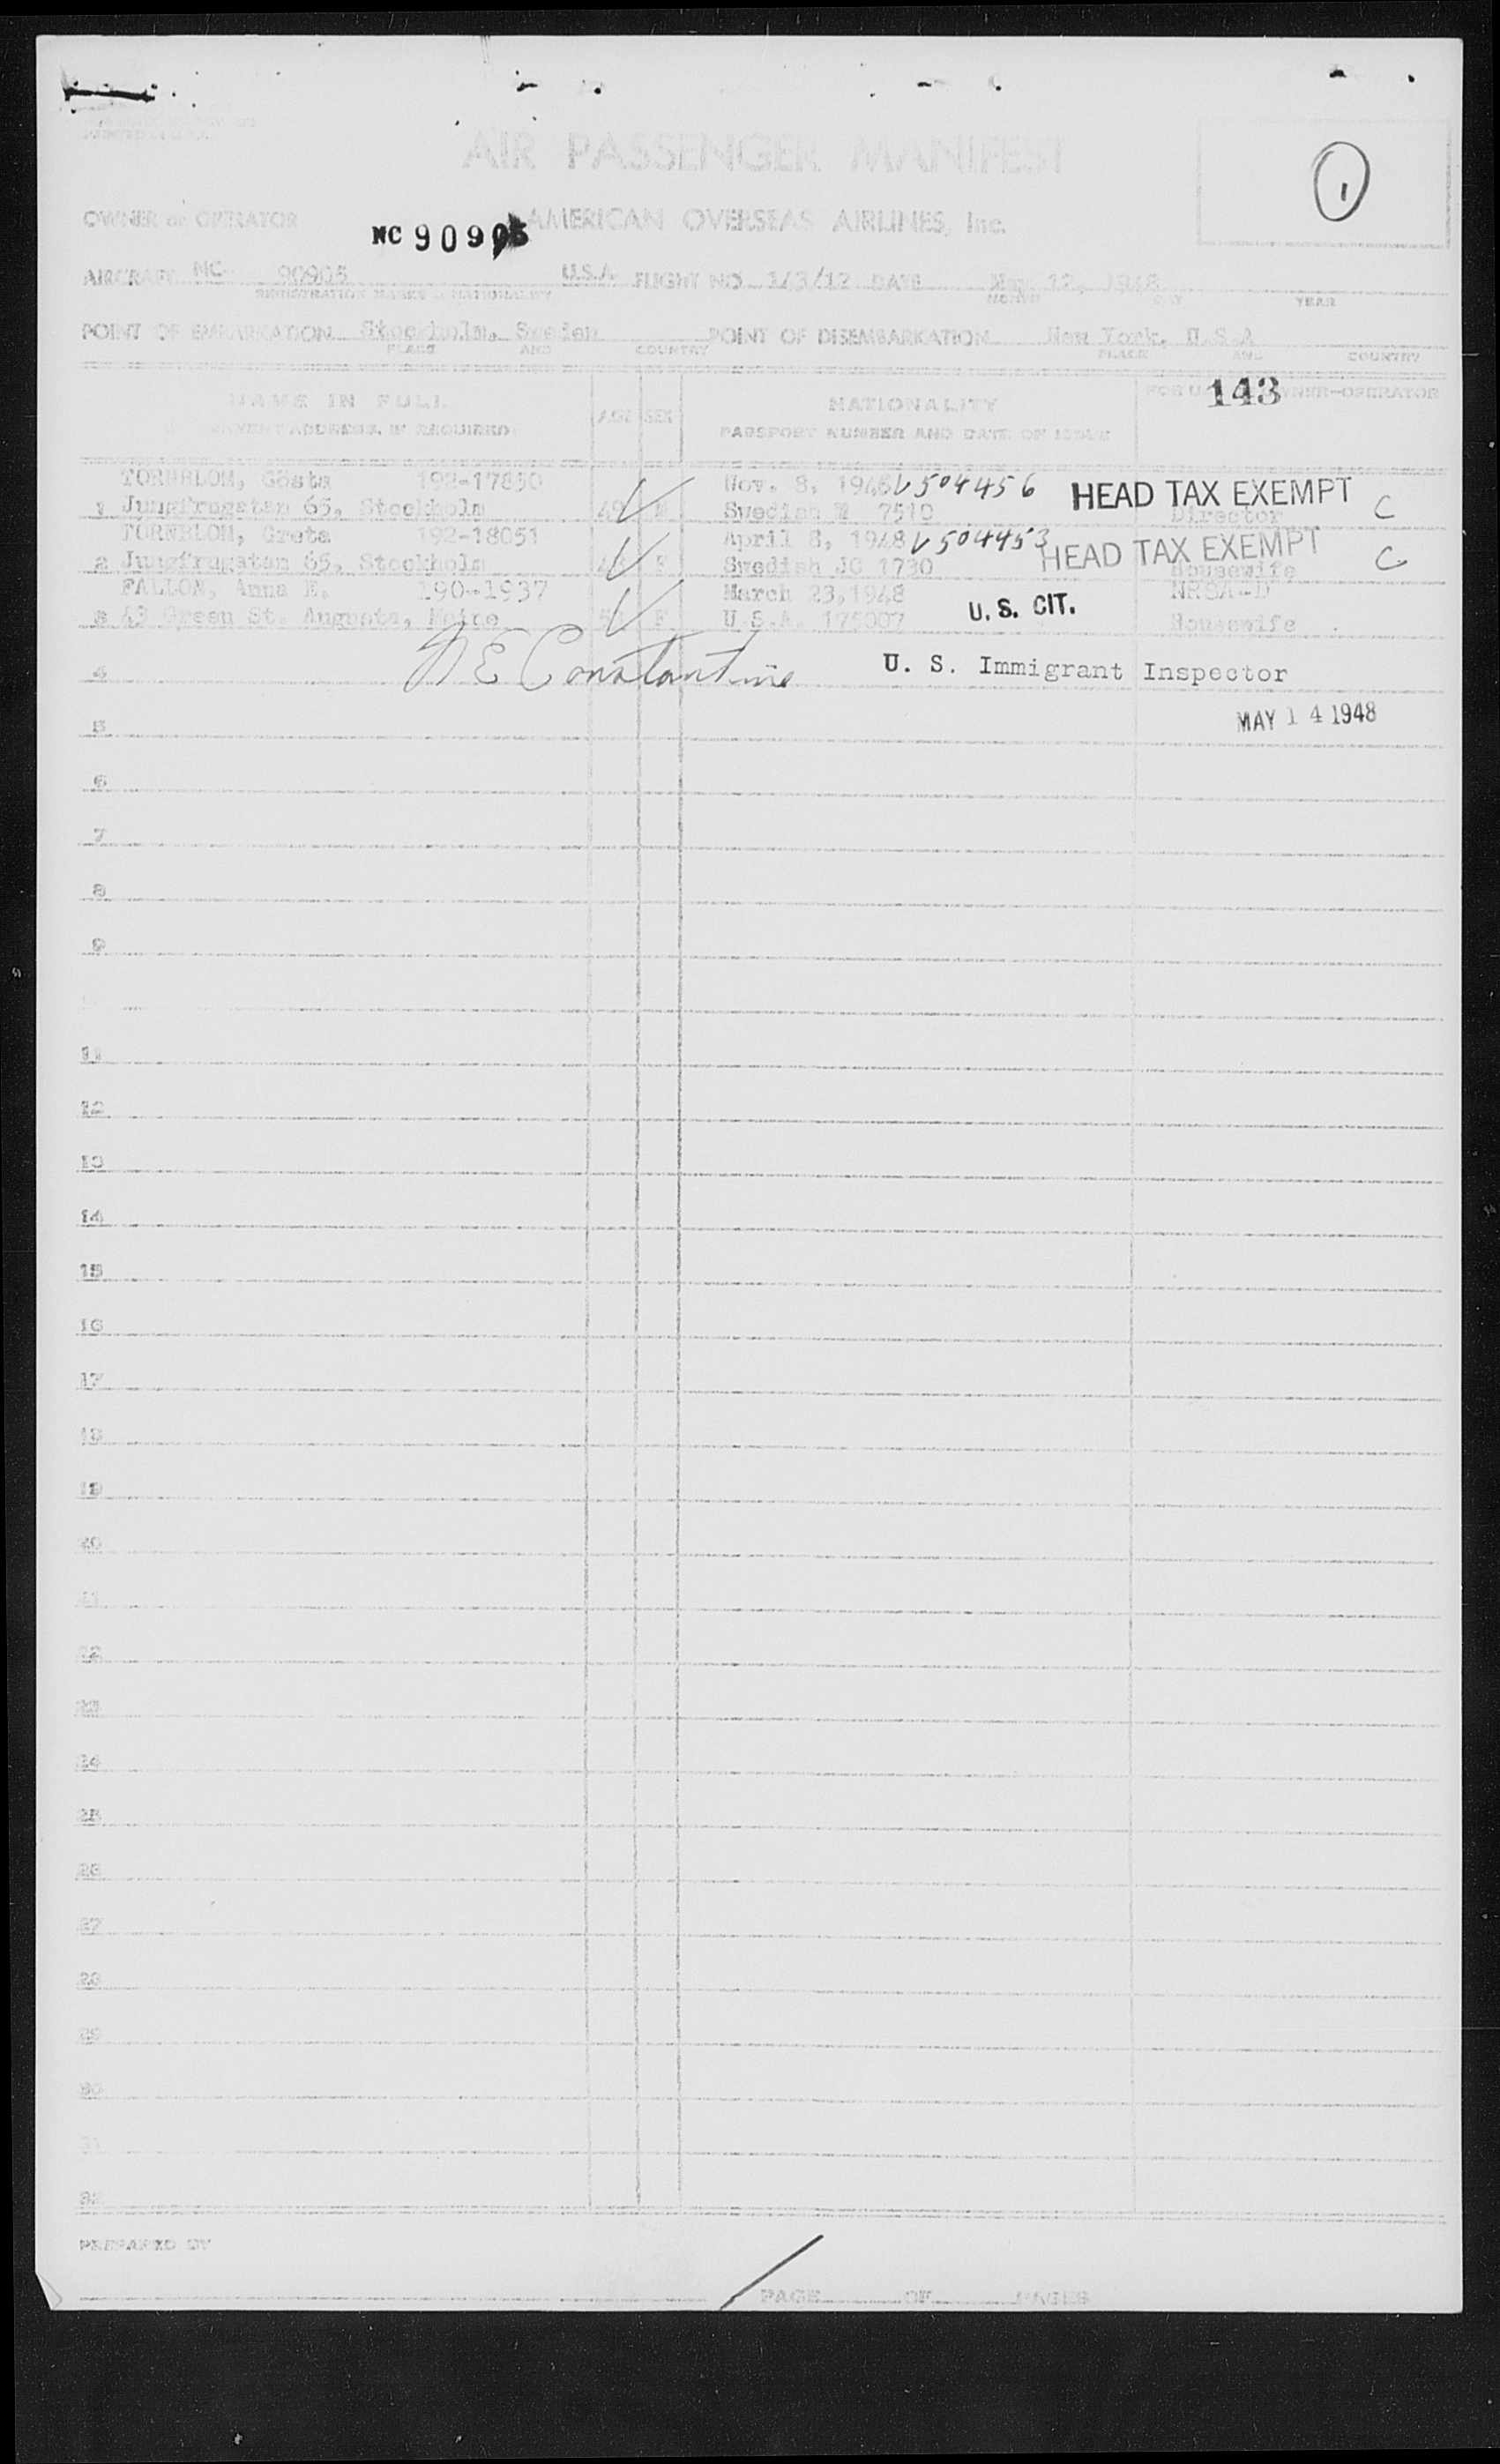 AIR PASSENGER MANIFEST
1
OWNER or OPERATOR AMERICAN OVERSEAS AIRLINES, Inc.
NC 90905
AIRCRAFT NC 90905 U.S.A. FLIGHT NO. DATE May 12, 1948
REGISTRATION MARKS & NATIONALITY MONTH DAY YEAR
POINT OF EMBARKATION Stockholm, Sweden POINT OF DISEMBARKATION New York, U.S.A
PLACE AND COUNTRY PLACE AND COUNTRY
143
NAME IN FULL AGE SEX NATIONALITY OWNER-OPERATOR
ADDRESS, IF REQUIRED PASSPORT NUMBER AND DATE OF ISSUE
TORNBLOM, Gösta 192-17850 Nov. 8, 1946 V504456 HEAD TAX EXEMPT C
1 Jungfrugatan 65, Stockholm 49 M Swedish 7510 Director
TORNBLOM, Greta 192-18051 April 8, 1948 V504453 HEAD TAX EXEMPT C
2 Jungfrugatan 65, Stockholm F Swedish JO 1730 Housewife
FALLON, Anna E. 190-1937 March 23, 1948 U.S. CIT.
3 43 Green St. Augusta, Maine F U.S.A. 175007 Housewife
4 Constantine U. S. Immigrant Inspector
5 MAY 14 1948
6
7
8
9
11
12
13
14
15
16
17
18
19
20
21
22
23
24
25
26
27
28
29
30
32
PREPARED BY
PAGE OF PAGES